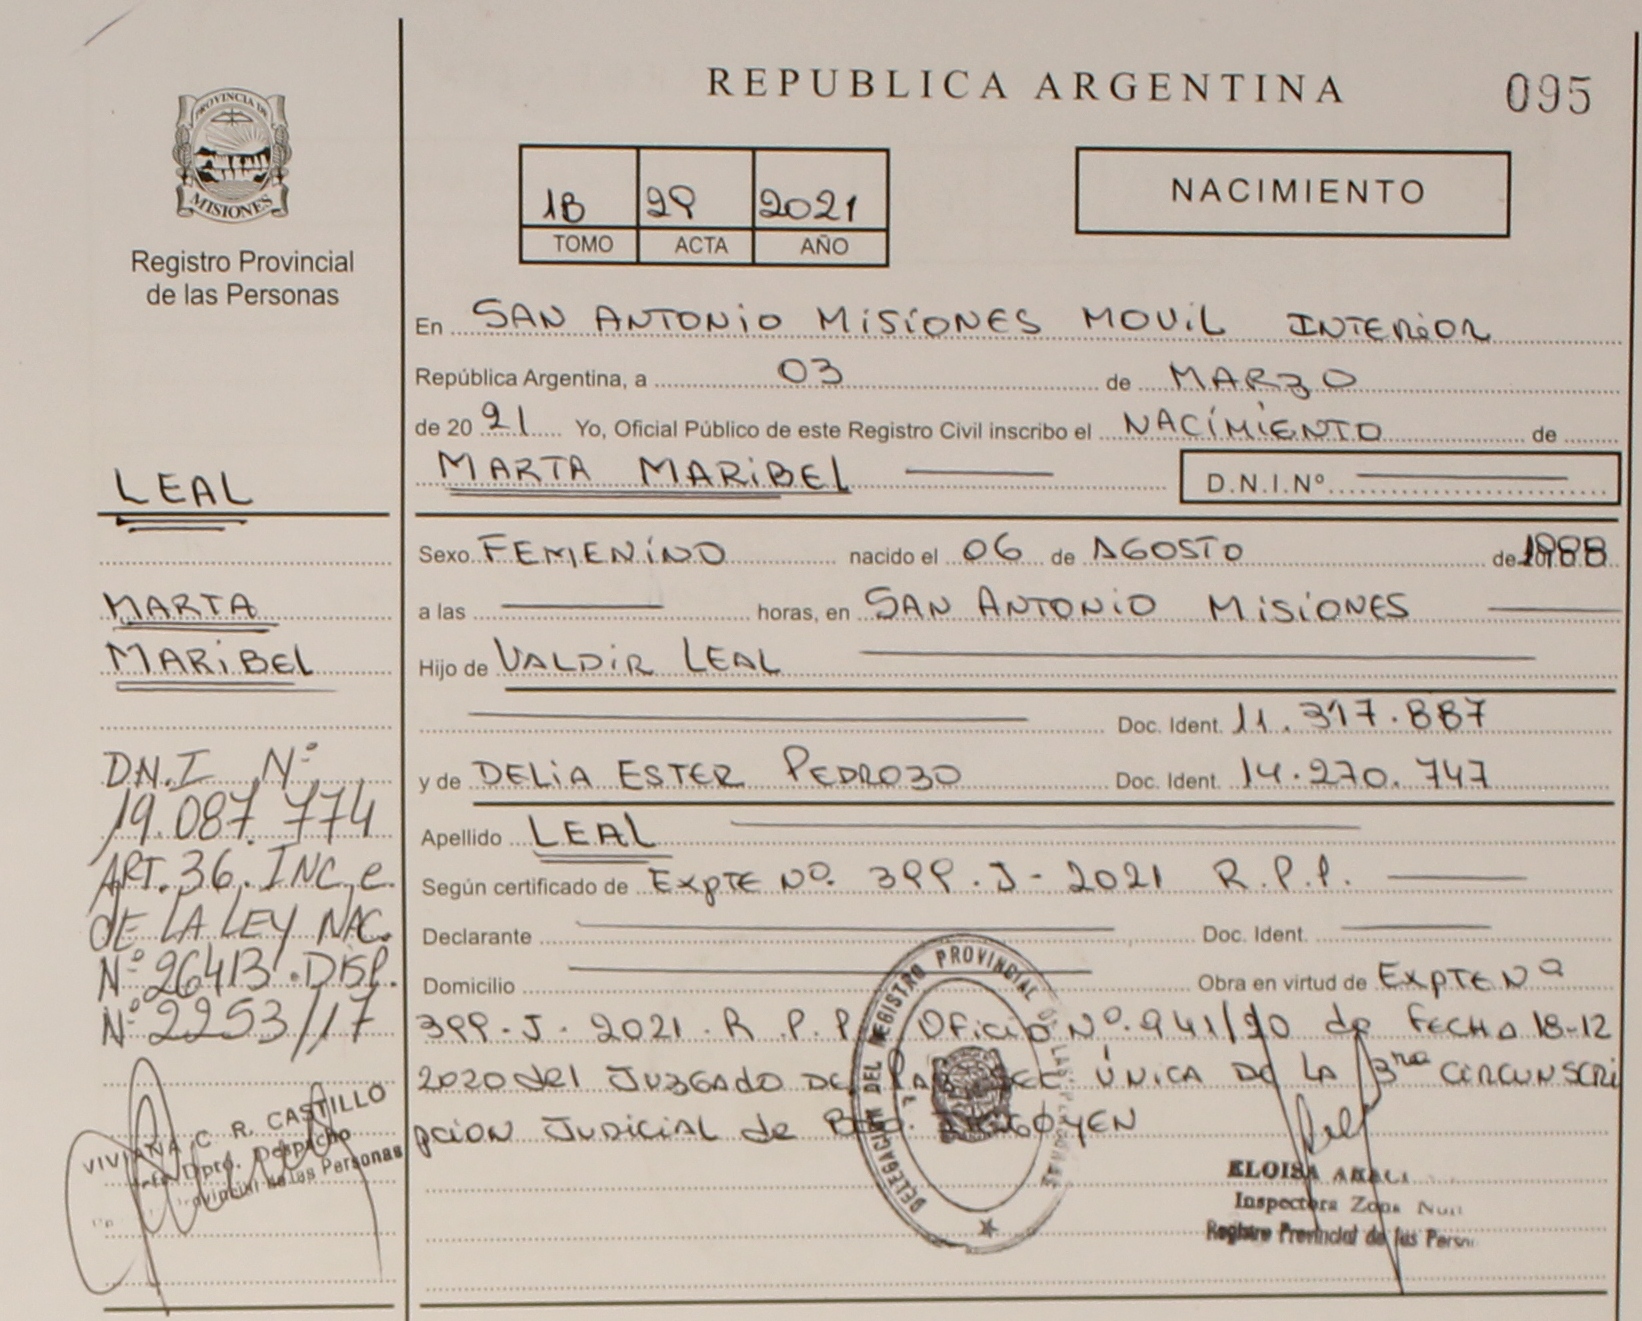 REPUBLICA ARGENTINA
095
PROVINCIA DE
MISIONES
Registro Provincial
de las Personas
1B 29 2021
TOMO ACTA AÑO
NACIMIENTO
En SAN ANTONIO MISIONES MOVIL INTERIOR
República Argentina, a 03 de MARZO
de 20 21 Yo, Oficial Público de este Registro Civil inscribo el NACIMIENTO de
MARTA MARIBEL D.N.I.Nº
Sexo FEMENINO nacido el 06 de AGOSTO de 1988
a las horas, en SAN ANTONIO MISIONES
Hijo de VALDIR LEAL
Doc. Ident. 11.317.887
y de DELIA ESTER PEDROZO Doc. Ident. 14.270.747
Apellido LEAL
Según certificado de EXPTE Nº. 399.J-2021 R.P.P.
Declarante Doc. Ident.
Domicilio Obra en virtud de EXPTE Nº
399.J-2021.R.P.P. OFICIO Nº.941/20 de FECHA 18-12
2020 del JUZGADO DE PAZ ÚNICA DE LA 3ra CIRCUNSCRI
pCION JUDICIAL de
LEAL
MARTA
MARIBEL
D.N.I Nº
19.087.774
ART.36.INC,e.
DE LA LEY NAC.
Nº26413.DISP.
Nº2253/17
VIVIANA C R. CASTILLO
Dpto. Despacho
de las Personas
DELEGACION DEL REGISTRO PROVINCIAL DE LAS PERSONAS
ELOISA
Inspectora Zona
Registro Provincial de las